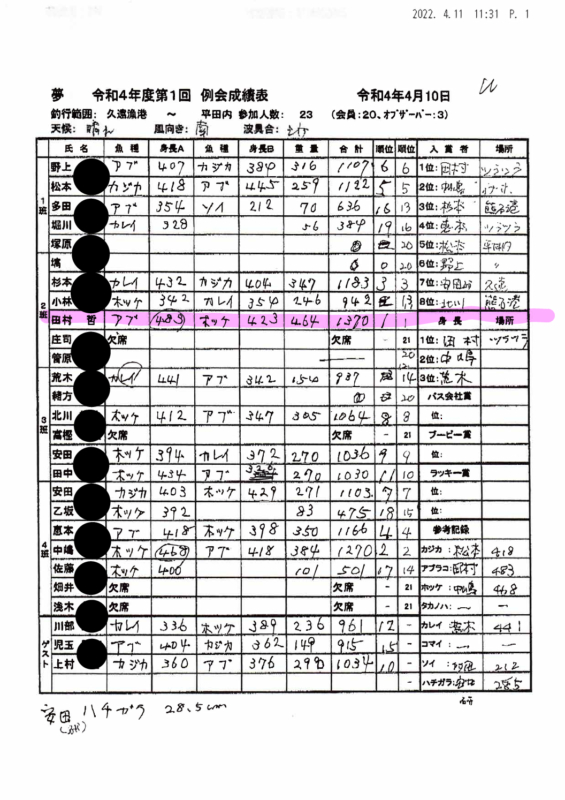 2022. 4.11 11:31 P. 1
夢 令和4年度第1回 例会成績表 令和4年4月10日
釣行範囲: 久遠漁港 ～ 平田内 参加人数: 23 (会員:20、オブザーバー:3)
天候: 晴れ 風向き: 南 波具合:
氏 名 魚 種 身長A 魚 種 身長B 重 量 合 計 順位 順位 入 賞 者 場所
1班
野上 アブ 407 カジカ 384 316 1107 6 6 1位: 田村 ツラツラ
松本 カジカ 418 アブ 445 259 1122 5 5 2位: 中嶋
多田 アブ 354 ソイ 212 70 636 16 13 3位: 杉本 熊石港
堀川 カレイ 328 56 384 19 16 4位: 恵本 ツラツラ
塚原 0 20 5位: 松本 平田内
塙 0 0 20 6位: 野上 〃
2班
杉本 カレイ 432 カジカ 404 347 1183 3 3 7位: 安田 久遠
小林 ホッケ 342 カレイ 354 246 942 13 8位: 北川 熊石港
田村 哲 アブ 483 ホッケ 423 464 1370 1 1 身 長 場所
庄司 欠席 欠席 - 21 1位: 田村 ツラツラ
菅原 20 2位: 中嶋
3班
荒木 カレイ 441 アブ 342 154 937 14 3位: 荒木
緒方 0 20 バス会社賞
北川 ホッケ 412 アブ 347 305 1064 8 8 位:
高樫 欠席 欠席 - 21 ブービー賞
安田 ホッケ 394 カレイ 372 270 1036 9 9 位:
田中 ホッケ 434 アブ 326 270 1030 11 10 ラッキー賞
4班
安田 カジカ 403 ホッケ 429 271 1103 7 7 位:
乙坂 ホッケ 392 83 475 18 15 位:
恵本 アブ 418 ホッケ 398 350 1166 4 4 参考記録
中嶋 ホッケ 468 アブ 418 384 1270 2 2 カジカ: 松本 418
佐藤 ホッケ 400 101 501 17 14 アブラコ: 田村 483
畑井 欠席 欠席 - 21 ホッケ: 中嶋 468
浅木 欠席 欠席 - 21 タカノハ: ー ー
ゲスト
川部 カレイ 336 ホッケ 389 236 961 12 - カレイ: 荒木 441
児玉 アブ 404 カジカ 362 149 915 15 - コマイ: ー ー
上村 カジカ 360 アブ 376 298 1034 10 - ソイ: 212
- ハチガラ: 安田 285
安田 ハチガラ 28.5cm